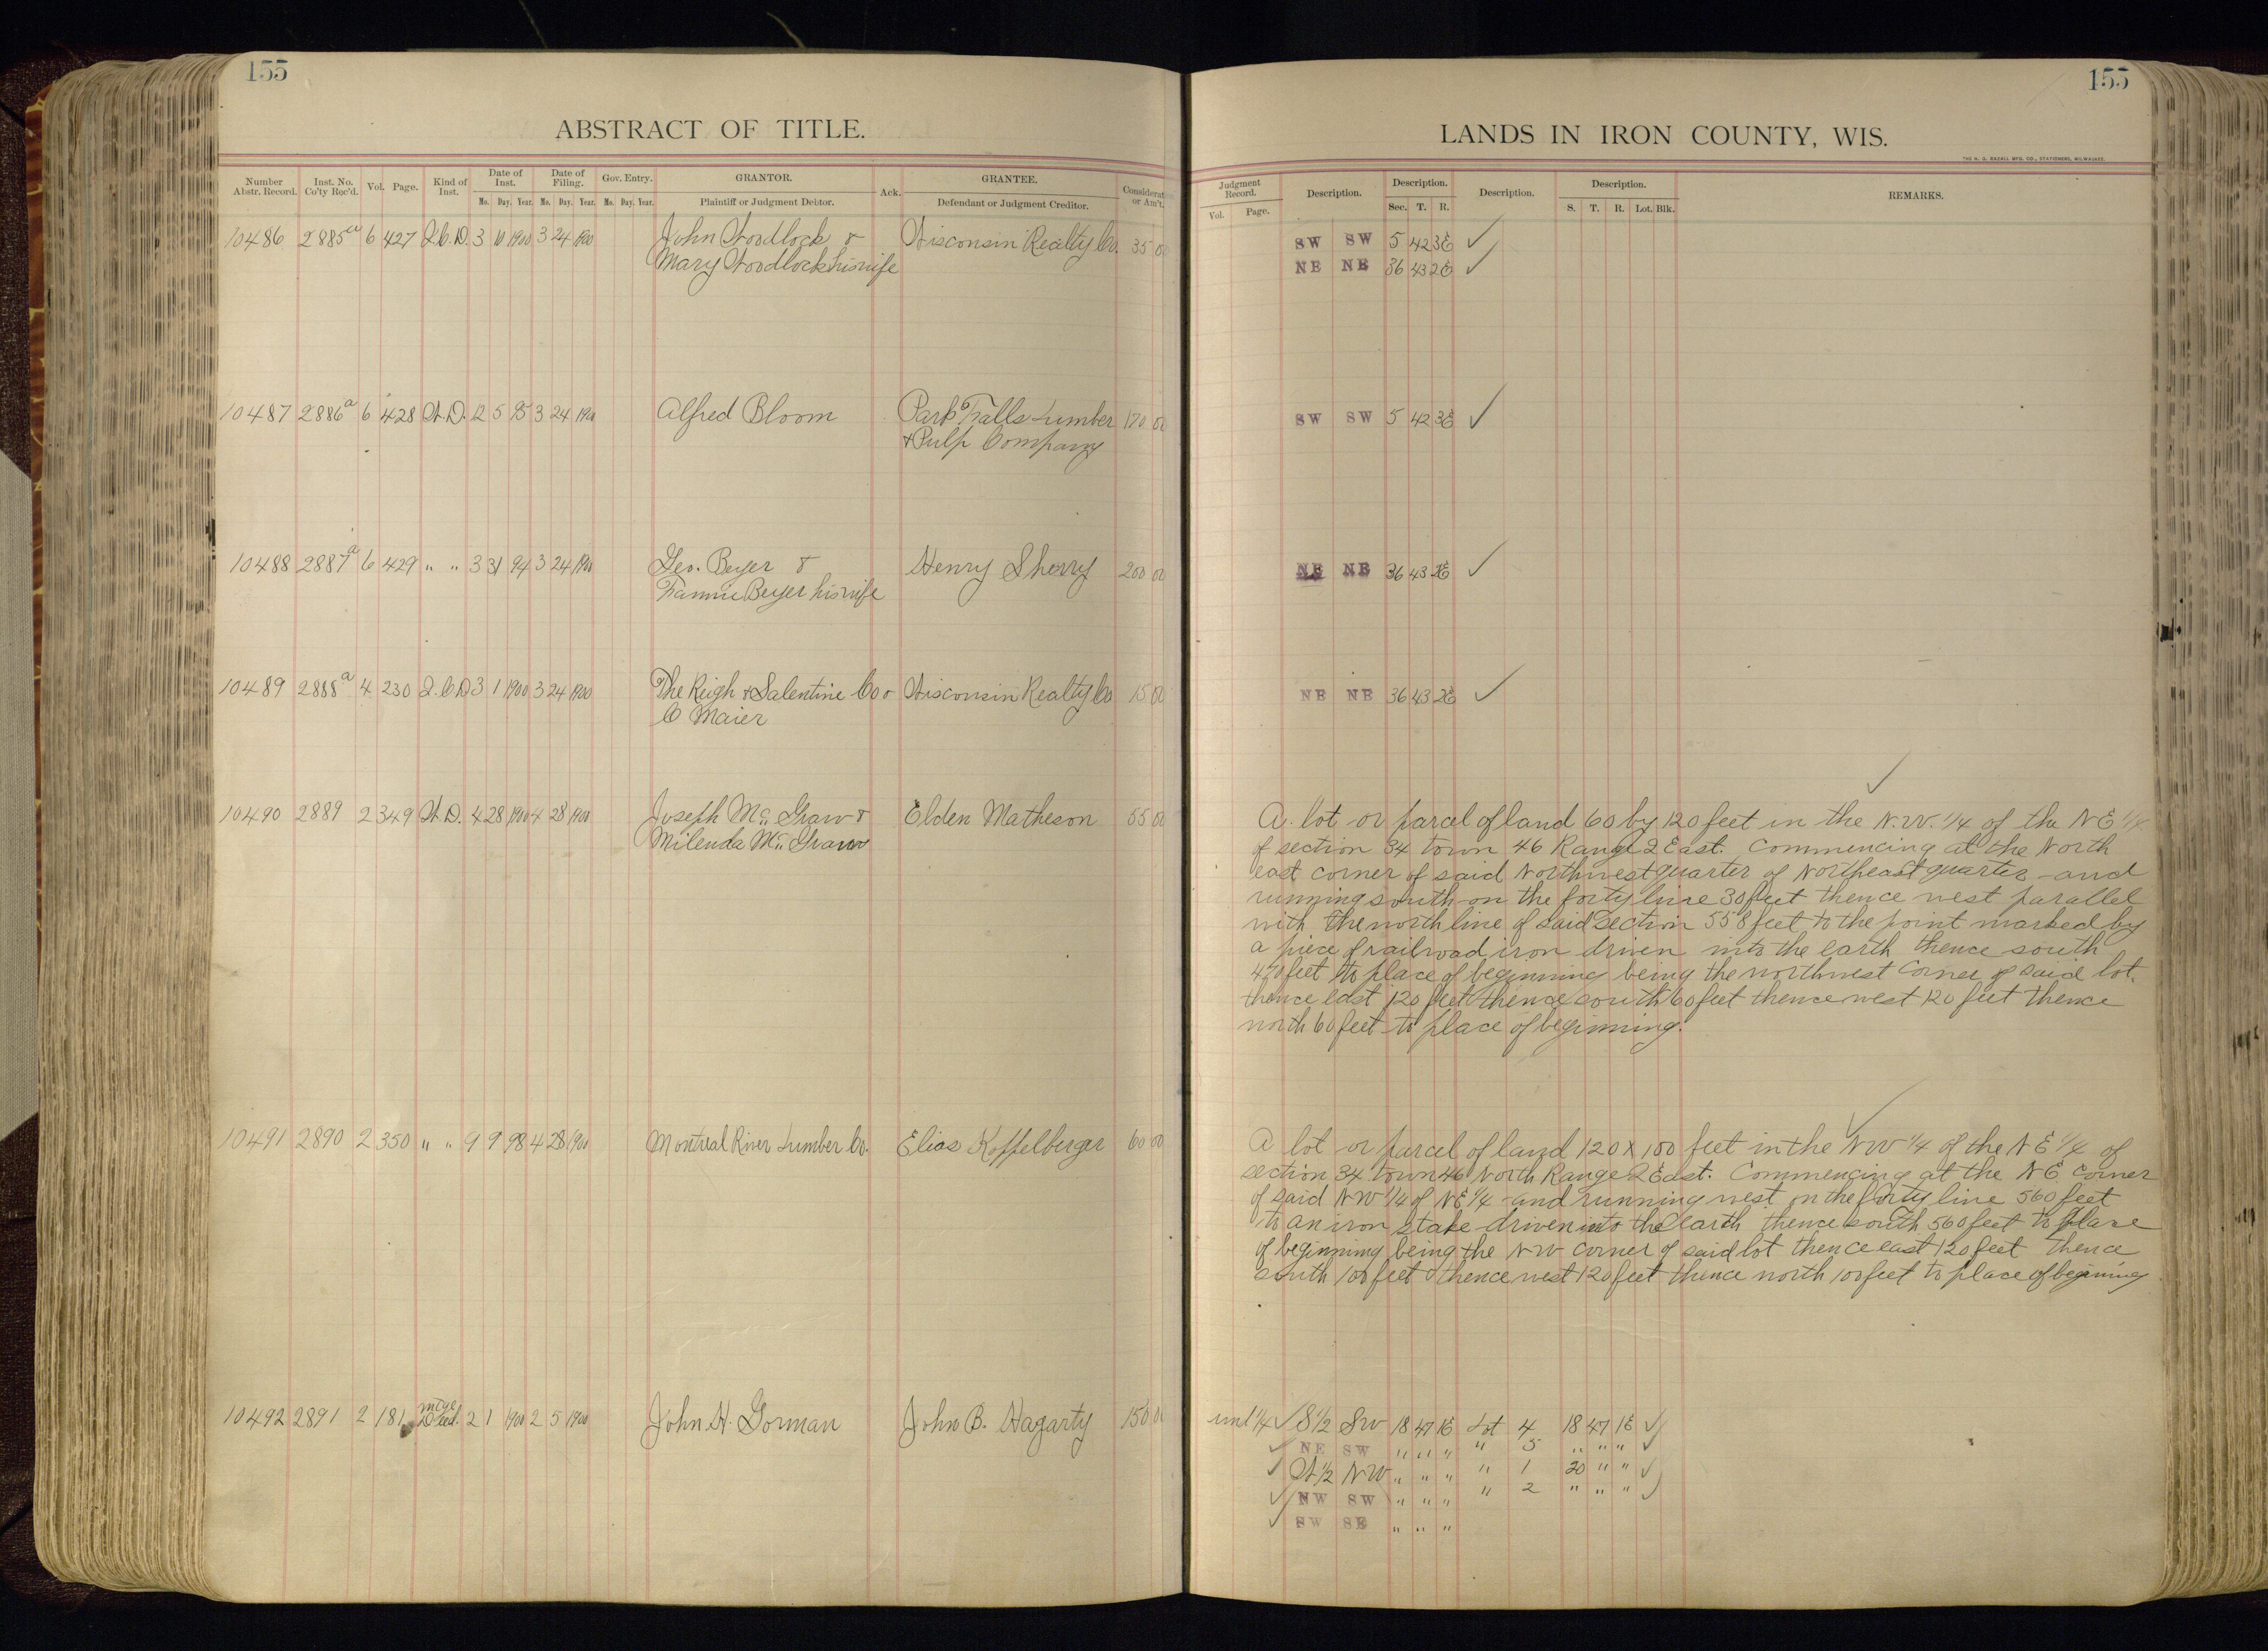 155
ABSTRACT OF TITLE.
Number Abstr. Record. Inst. No. Co'ty Rec'd. Vol. Page. Kind of Inst. Date of Inst. Date of Filing. Gov. Entry. GRANTOR. Ack. GRANTEE. Considerat or Am't.
Mo. Day. Year. Mo. Day. Year. Mo. Day. Year. Plaintiff or Judgment Debtor. Defendant or Judgment Creditor.
10486 2885a 6 427 Q.C.D. 3 10 1900 3 24 1900 John Woodlock & Wisconsin Realty Co. 35 00
Mary Woodlock his wife
10487 2886a 6 428 W.D. 12 5 95 3 24 1900 Alfred Bloom Park Falls Lumber 170 00
& Pulp Company
10488 2887a 6 429 " " 3 31 94 3 24 1900 Geo. Beyer & Henry Sherry 200 00
Fannie Beyer his wife
10489 2888a 4 230 Q.C.D 3 1 1900 3 24 1900 The Reigh & Salentine Co & Wisconsin Realty Co 15 00
C Maier
10490 2889 2 349 W.D. 4 28 1900 4 28 1900 Joseph Mc Graw & Elden Matheson 55 00
Milenda Mc Graw
10491 2890 2 350 " " 9 9 98 4 28 1900 Montreal River Lumber Co. Elias Koffelberger 60 00
10492 2891 2 181 Mtge Deed. 2 1 1900 2 5 1900 John H. Gorman John B. Hagarty 150 00
155
LANDS IN IRON COUNTY, WIS.
THE H. G. RAZALL MFG. CO., STATIONERS, MILWAUKEE.
Judgment Record. Description. Description. Description. Description. REMARKS.
Vol. Page. Sec. T. R. S. T. R. Lot. Blk.
SW SW 5 42 3E ✓
NE NE 36 43 2E ✓
SW SW 5 42 3E ✓
NE NE 36 43 2E ✓
NE NE 36 43 2E ✓
A lot or parcel of land 60 by 120 feet in the N.W. 1/4 of the NE 1/4
of section 34 town 46 Range 2 East. Commencing at the North
east corner of said Northwest quarter of Northeast quarter and
running south on the forty line 30 feet thence west parallel
with the north line of said section 558 feet to the point marked by
a piece of railroad iron driven into the earth thence south
470 feet to place of beginning being the northwest corner of said lot.
thence east 120 feet thence south 60 feet thence west 120 feet thence
north 60 feet to place of beginning.
A lot or parcel of land 120 X 100 feet in the NW 1/4 of the NE 1/4 of
section 34 town 46 North Range 2 East. Commencing at the NE corner
of said NW 1/4 of NE 1/4 and running west on the forty line 560 feet
to an iron stake driven into the earth thence south 560 feet to place
of beginning being the NW corner of said lot thence east 120 feet thence
south 100 feet thence west 120 feet thence north 100 feet to place of beginning
und 1/4 ✓ S 1/2 SW 18 47 1E Lot 4 18 47 1E ✓
✓ NE SW " " " " 5 " " " ✓
✓ W 1/2 NW " " " " 1 20 " " ✓
✓ NW SW " " " " 2 " " " ✓
✓ SW SE " " "